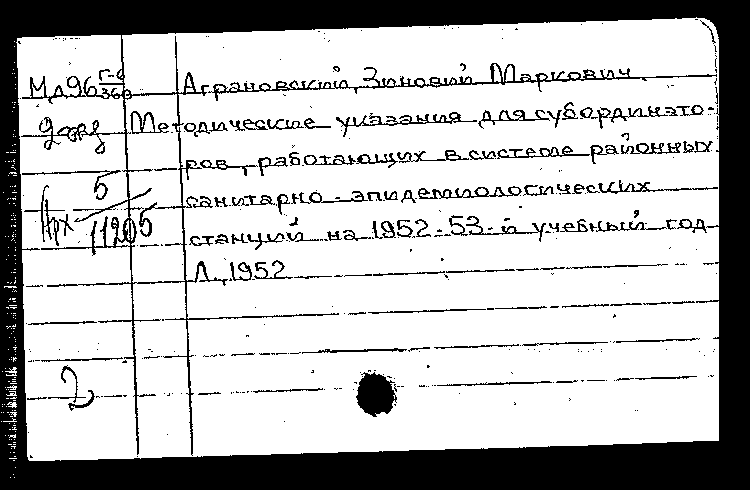 Мл96 Г-6/363 Аграновский, Зиновий Маркович.
Методические указания для субординато-
ров, работающих в системе районных
санитарно-эпидемиологических
станций на 1952-53-й учебный год
Л., 1952
Арх 5/11205
2